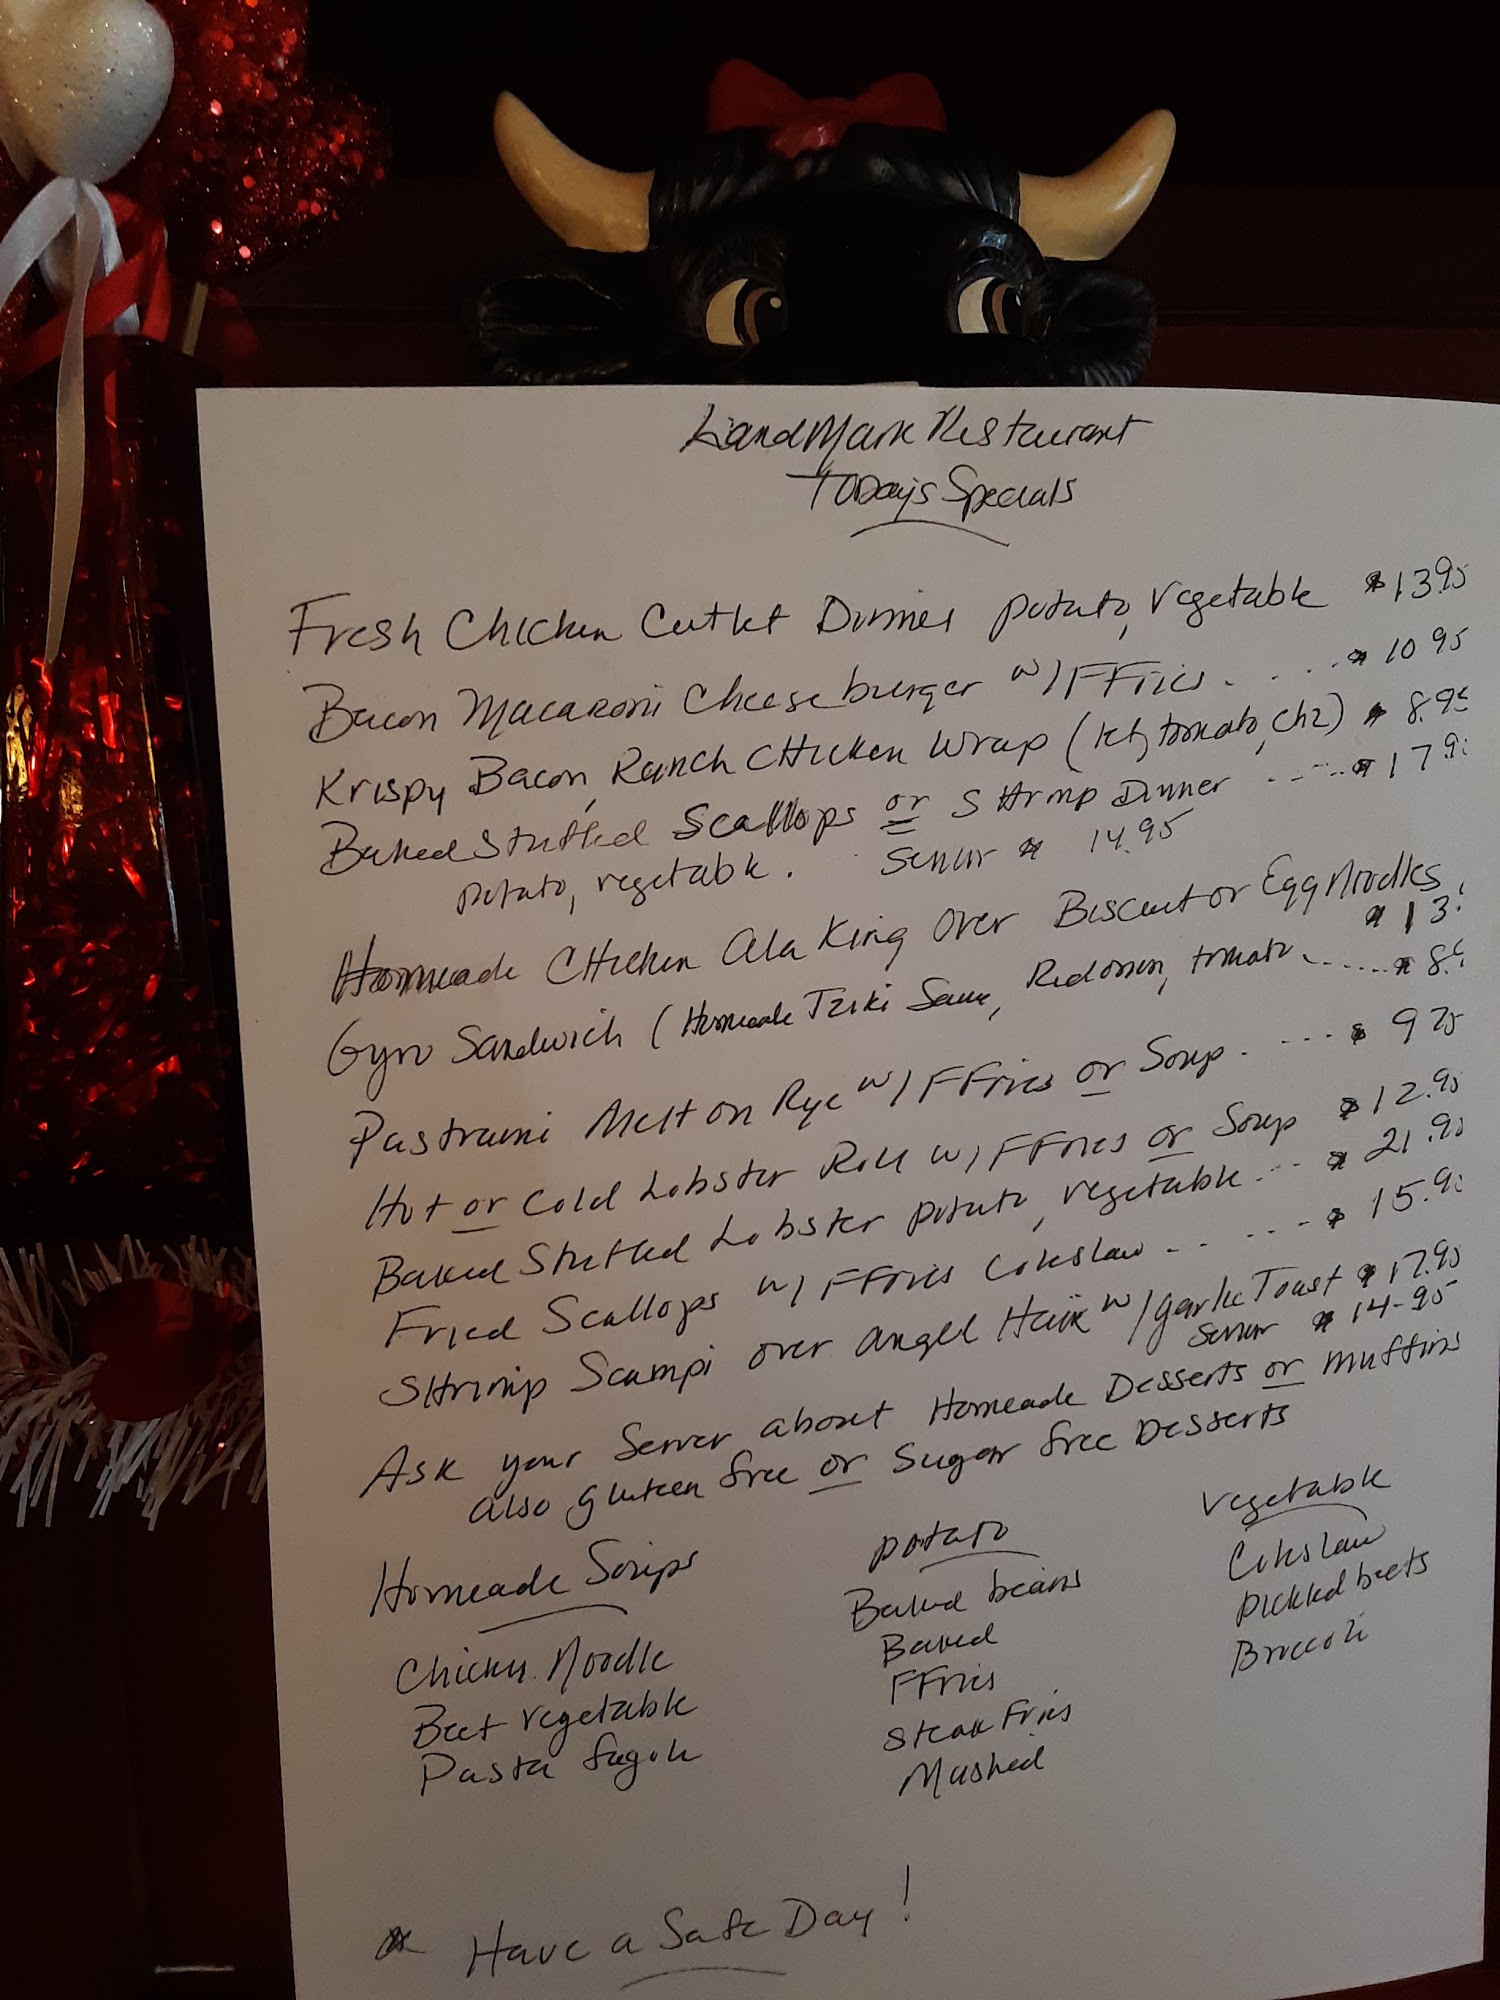 LandMark Restaurant
Today's Specials
Fresh Chicken Cutlet Dinner potato, vegetable $13.95
Bacon Macaroni Cheeseburger w/ FFries . . . . $ 10 95
Krispy Bacon, Ranch Chicken Wrap (let, tomato, chz) $ 8.95
Baked Stuffed Scallops or Shrimp Dinner ----- $ 17.9
potato, vegetable. Senior $ 14.95
Homeade Chicken Ala King Over Biscuit or Egg Noodles
$ 13.
Gyro Sandwich (Homeade Tziki Sauce, Red onion, tomato ...... $ 8.
Pastrami Melt on Rye w/ FFries or Soup . --- $ 9
Hot or Cold Lobster Roll w/ FFries or Soup $ 12.95
Baked Stuffed Lobster potato, vegetable . -- $ 21.95
Fried Scallops w/ FFries Coleslaw -- ---- $ 15.9
Shrimp Scampi over Angel Hair w/ garlic Toast $ 17.95
Senior $ 14-95
Ask your Server about Homeade Desserts or muffins
also gluten free or Sugar free Desserts
Homeade Soups potato vegetable
Chicken Noodle Baked beans Coleslaw
Beef vegetable Baked pickled beets
Pasta fagoli FFries Broccoli
Steak Fries
Mashed
Have a Safe Day!